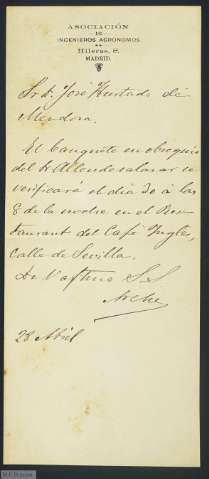 ASOCIACIÓN
DE
INGENIEROS AGRÓNOMOS
Hileras, 8.
MADRID.
Sr. D. José Hurtado de
Mendoza.
El banquete en obsequio
del Sr. Allendesalazar se
verificará el día 30 á las
8 de la noche en el Res-
taurant del Café Inglés,
Calle de Sevilla.
De V. afftmo S. S.
28 Abril